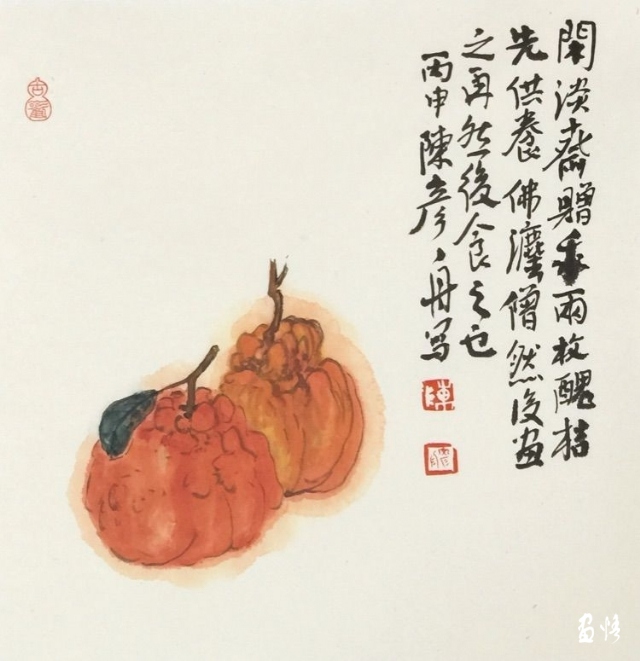 閑淡齋贈兩枚醜桔
先供養佛灋僧然後畫
之再然後食之也
丙申陳彦舟写
陳